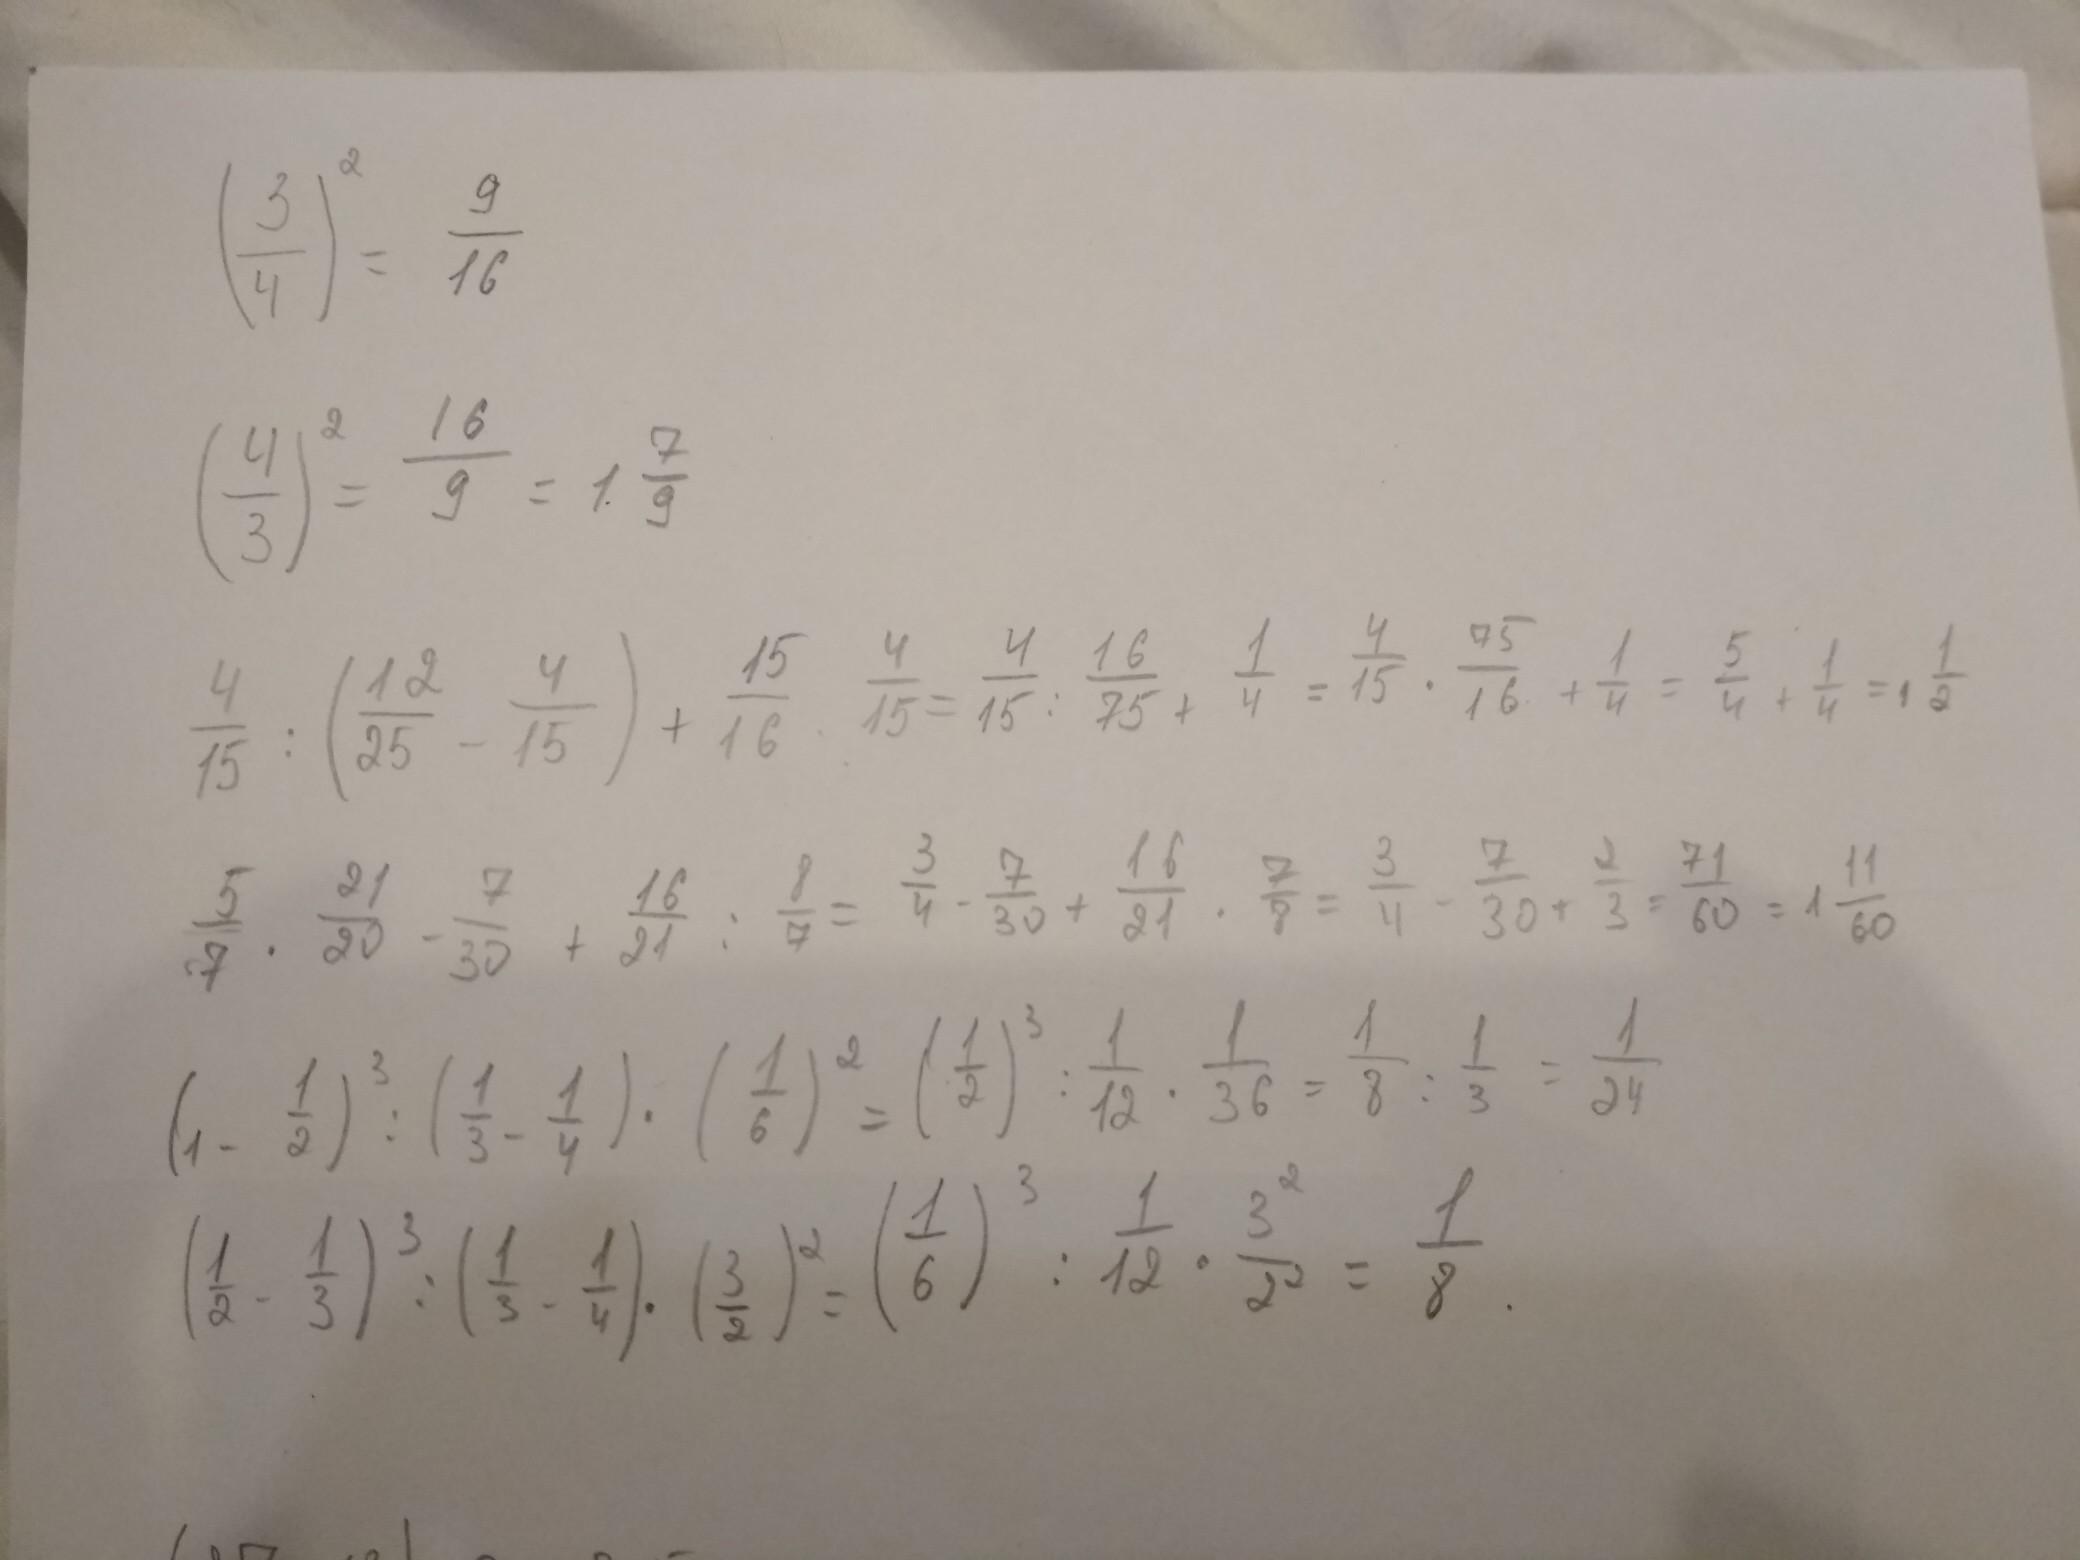 (3/4)² = 9/16
(4/3)² = 16/9 = 1 7/9
4/15 : (12/25 - 4/15) + 15/16 · 4/15 = 4/15 : 16/75 + 1/4 = 4/15 · 75/16 + 1/4 = 5/4 + 1/4 = 1 1/2
5/7 · 21/20 - 7/30 + 16/21 : 8/7 = 3/4 - 7/30 + 16/21 · 7/8 = 3/4 - 7/30 + 2/3 = 71/60 = 1 11/60
(1 - 1/2)³ : (1/3 - 1/4) · (1/6)² = (1/2)³ : 1/12 · 1/36 = 1/8 : 1/3 = 1/24
(1/2 - 1/3)³ : (1/3 - 1/4) · (3/2)² = (1/6)³ : 1/12 · 3²/2² = 1/8 .